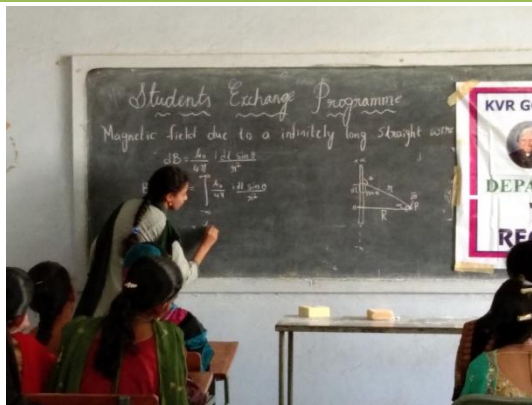 Students Exchange Programme
Magnetic field due to a infinitely long straight wire
dB = μ₀/4π i dl sinθ/r²
B
∫ μ₀/4π i dl sinθ/r²
R
P
KVR G
DEPA
RE